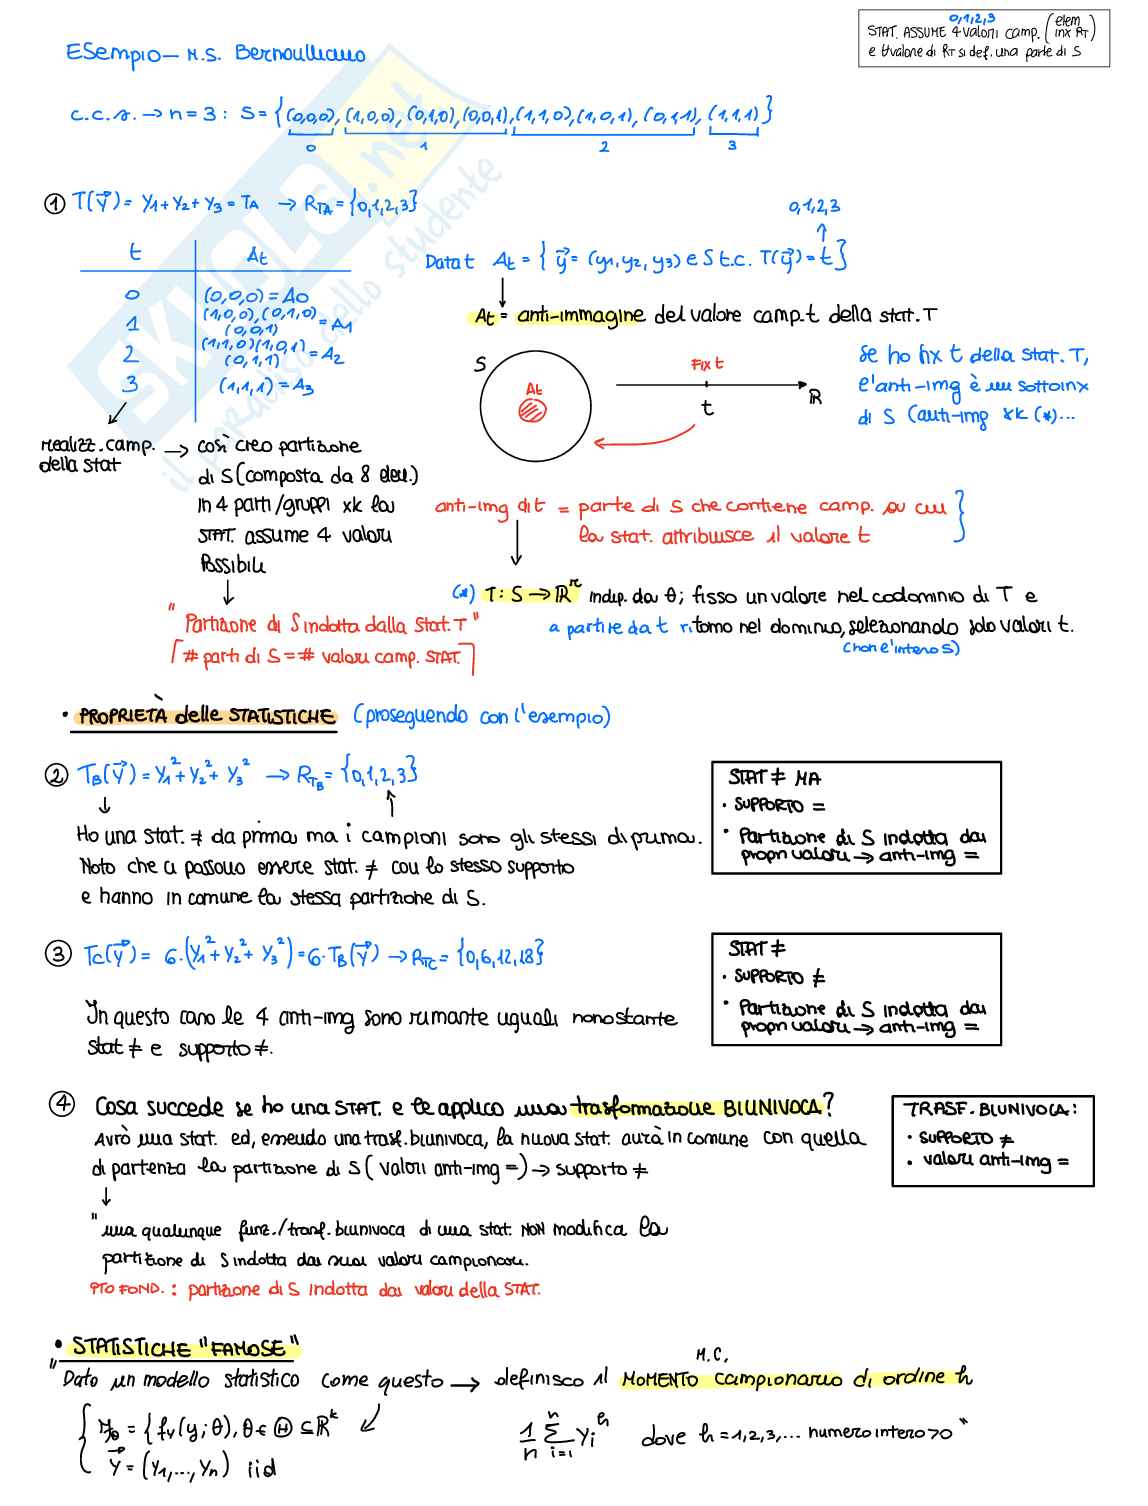 0,1,2,3
STAT. ASSUME 4 valori camp. (elem inx RT)
e ∀valore di RT si def. una parte di S
ESempio — M.S. Bernoulliano
c.c.s. → n=3 : S = {(0,0,0), (1,0,0), (0,1,0), (0,0,1), (1,1,0), (1,0,1), (0,1,1), (1,1,1)}
0 1 2 3
① T(Y) = Y1 + Y2 + Y3 = TA → RTA = {0,1,2,3}
t At
0 (0,0,0) = A0
1 (1,0,0),(0,1,0) (0,0,1) = A1
2 (1,1,0)(1,0,1) (0,1,1) = A2
3 (1,1,1) = A3
0,1,2,3
Data t At = { y = (y1, y2, y3) e S t.c. T(y) = t }
At = anti-immagine del valore camp. t della stat. T
S
At
Fix t
t
R
se ho fix t della stat. T,
e l'anti-img è un sottoinx
di S (anti-img xk (*)...
realizz. camp.
della stat
→ così creo partizione
di S (composta da 8 elem.)
in 4 parti/gruppi xk la
STAT. assume 4 valori
Possibili
"Partizione di S indotta dalla stat. T"
# parti di S = # valori camp. STAT.
anti-img di t = parte di S che contiene camp. su cui
la stat. attribuisce il valore t
(*) T: S → R^r indip. da θ; fisso un valore nel codominio di T e
a partire da t ritorno nel dominio, selezionando solo valori t.
(non e' intero S)
• PROPRIETÀ delle STATISTICHE (proseguendo con l'esempio)
② TB(Y) = Y1² + Y2² + Y3² → RTB = {0,1,2,3}
Ho una stat. ≠ da prima ma i campioni sono gli stessi di prima.
Noto che ci possono essere stat. ≠ con lo stesso supporto
e hanno in comune la stessa partizione di S.
STAT ≠ MA
• SUPPORTO =
• Partizione di S indotta dai
propri valori → anti-img =
③ TC(Y) = 6·(Y1² + Y2² + Y3²) = 6·TB(Y) → RTC = {0,6,12,18}
In questo caso le 4 anti-img sono rimaste uguali nonostante
stat ≠ e supporto ≠.
STAT ≠
• SUPPORTO ≠
• Partizione di S indotta dai
propri valori → anti-img =
④ Cosa succede se ho una STAT. e le applico una trasformazione BIUNIVOCA?
Avrò una stat. ed, essendo una trasf. biunivoca, la nuova stat. avrà in comune con quella
di partenza la partizione di S (valori anti-img =) → supporto ≠
"una qualunque funz./trasf. biunivoca di una stat. NON modifica la
partizione di S indotta dai suoi valori campionari.
PTO FOND. : partizione di S indotta dai valori della STAT.
TRASF. BIUNIVOCA:
• SUPPORTO ≠
• valori anti-img =
• STATISTICHE "FAMOSE"
"Dato un modello statistico come questo → definisco il MOMENTO campionario di ordine h
M.C.
fθ = {fY(y;θ), θ ∈ Θ ⊆ R^k
Y = (Y1,...,Yn) iid
1/n Σ i=1 n Yi^h dove h = 1,2,3,... numero intero >0"
SKUOLA.net
il paradiso dello studente